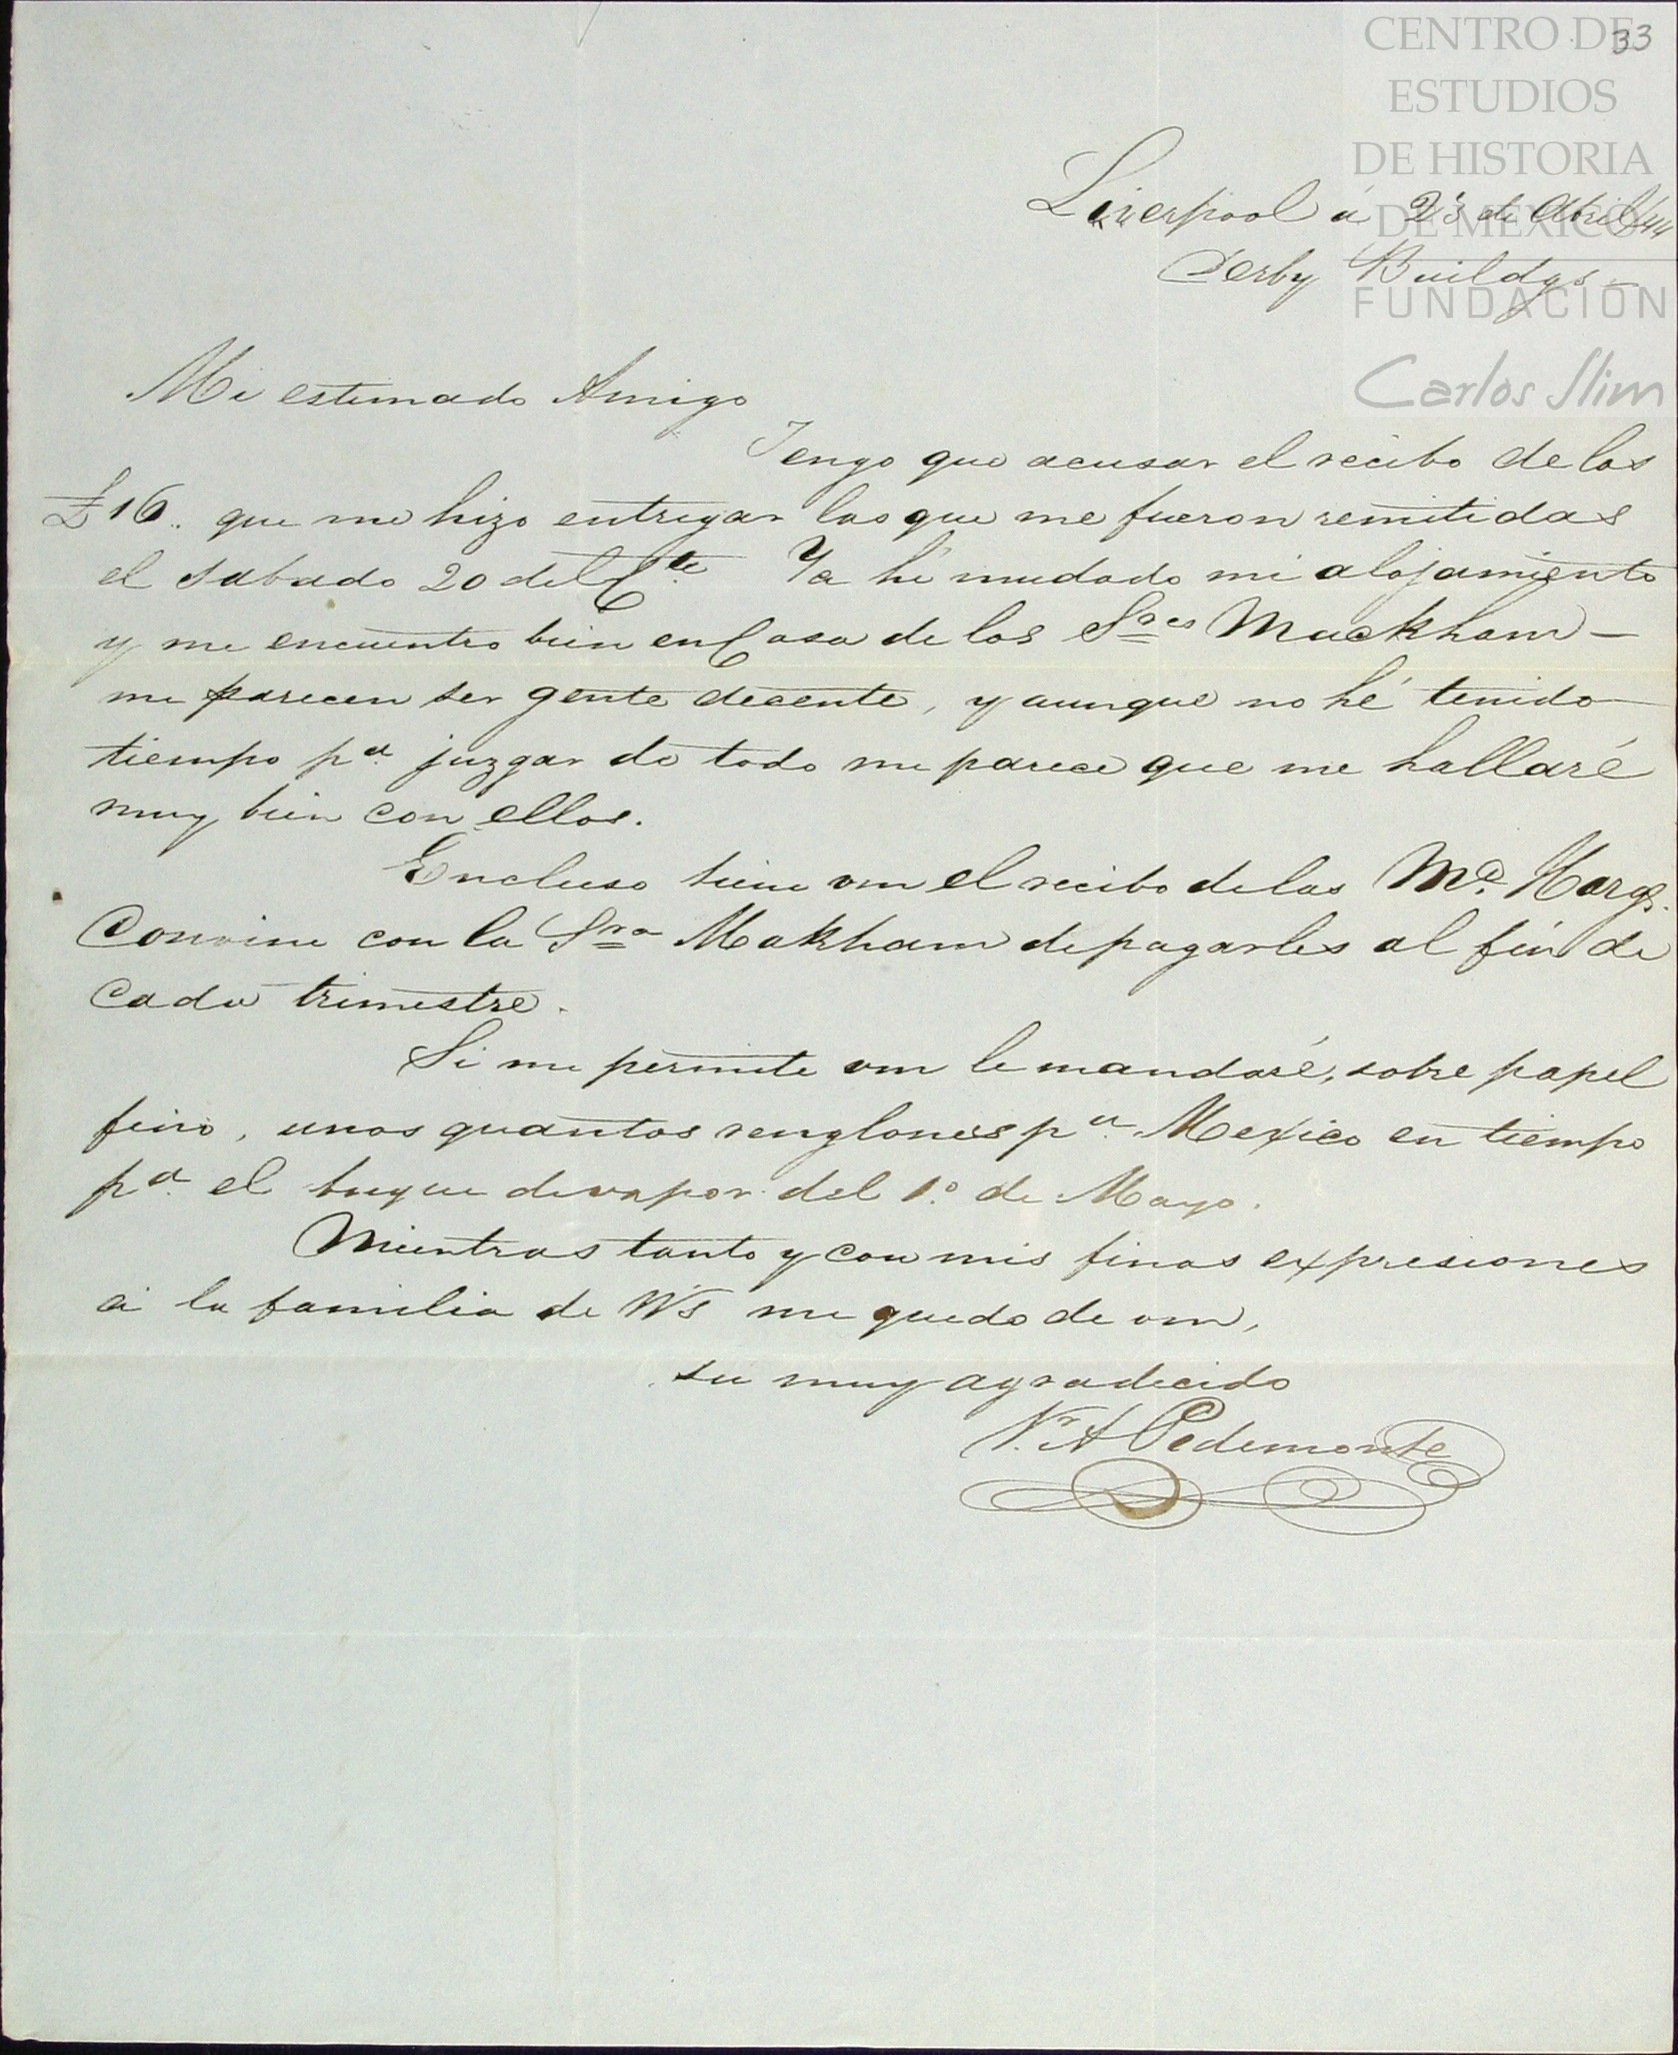 33
CENTRO DE
ESTUDIOS
DE HISTORIA
DE MEXICO
FUNDACIÓN
Carlos Slim
Liverpool á 23 de Abril/44
Derby Buildgs —
Mi estimado Amigo
Tengo que acusar el recibo de las
£16.. que me hizo entregar las que me fueron remitidas
el sabado 20 del Cte. Ya hé mudado mi alojamiento
y me encuentro bien en Casa de los Sres Mackham —
me parecen ser gente decente, y aunque no hé tenido
tiempo pa. juzgar de todo me parece que me hallaré
muy bien con ellos.
Encluso tiene vm el recibo de las Md. Harg.
Convine con la Sra Makham de pagarles al fin de
cada trimestre.
Si me permite vm le mandaré, sobre papel
fino, unos quantos renglones pa. Mexico en tiempo
pa. el buque de vapor del 1.º de Mayo.
Mientras tanto y con mis finas expresiones
á la familia de Vs me quedo de vm,
su muy agradecido
Vr. A Pedemonte